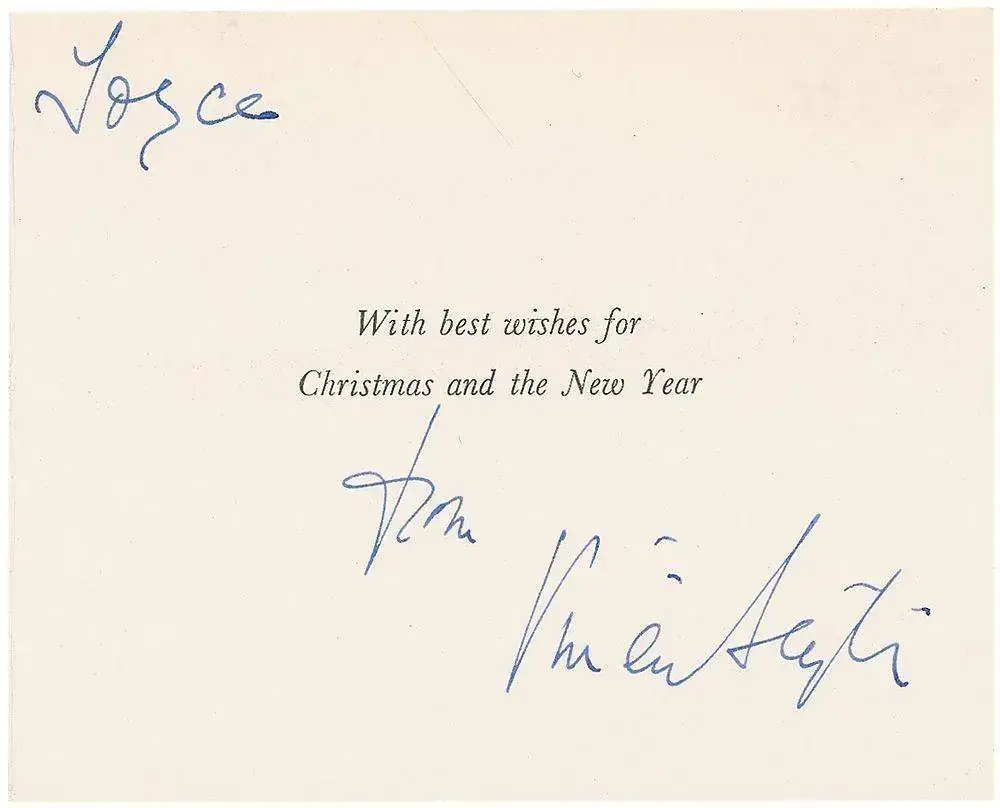 Joyce
With best wishes for
Christmas and the New Year
from
Vivien Leigh